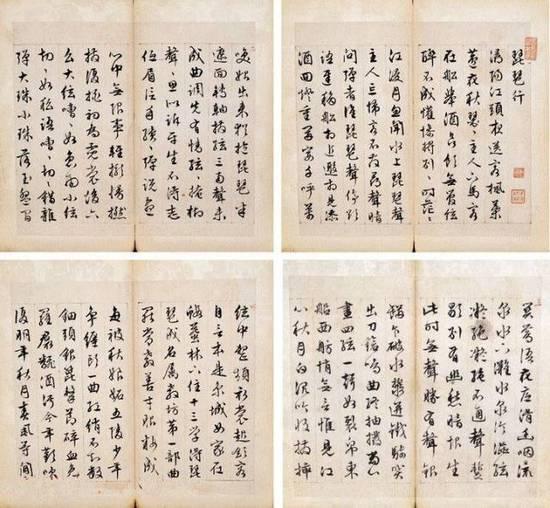 琵琶行
潯陽江頭夜送客楓葉
荻花秋瑟瑟主人下馬客
在船舉酒欲飲無管弦
醉不成歡慘將別別時茫茫
江浸月忽聞水上琵琶聲
主人忘歸客不發尋聲暗
問彈者誰琵琶聲停欲
語遲移船相近邀相見添
酒回燈重開宴千呼萬
喚始出來猶抱琵琶半
遮面轉軸撥弦三兩聲未
成曲調先有情弦弦掩抑
聲聲思似訴平生不得志
低眉信手續續彈說盡
心中無限事輕攏慢撚
撥復挑初為霓裳後六
么大弦嘈嘈如急雨小弦
切切如私語嘈嘈切切錯雜
彈大珠小珠落玉盤間
關鶯語花底滑幽咽流
泉水下灘水泉冷澀弦
凝絕凝絕不通聲暫
歇別有幽愁暗恨生
此時無聲勝有聲銀
瓶乍破水漿迸鐵騎突
出刀鎗鳴曲終抽撥當心
畫四弦一聲如裂帛東
船西舫悄無言惟見江
心秋月白沉吟收撥插
弦中整頓衣裳起斂容
自言本是京城女家在
蝦蟇陵下住十三學得琵
琶成名屬教坊第一部曲
罷常教善才服粧成
每被秋娘妬五陵少年
爭纏頭一曲紅綃不知數
鈿頭銀篦擊節碎血色
羅裙翻酒污今年歡笑
復明年秋月春風等閒